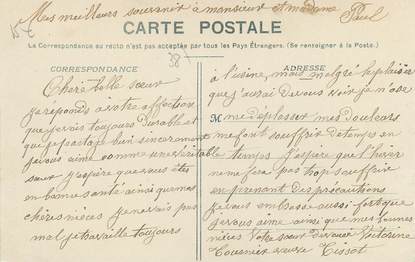 Mes meilleurs souvenir à monsieur et madame Paul
CARTE POSTALE
La Correspondance au recto n'est pas acceptée par tous les Pays Étrangers. (Se renseigner à la Poste.)
38
CORRESPONDANCE
ADRESSE
Chère belle sœur
je réponds a votre affection
que je vais toujours durable et
que je partage bien sincèrement
je vous aime comme une véritable
sœur j'espère que vous êtes
en bonne santé ainsi que mes
chères nièces je ne vais pas
mal je travaille toujours
à l'usine, mais malgré le plaisir
que j'aurai de vous voir je n'ose
M me déplasser mes douleurs
me font souffrir de temps en
temps J'espère que l'hiver
ne me fera pas trop souffrir
en prenant des précautions
je vous embrasse aussi fort que
je vous aime ainsi que mes bonnes
nièces Votre sœur dévouée Victorine
veuve Tissot